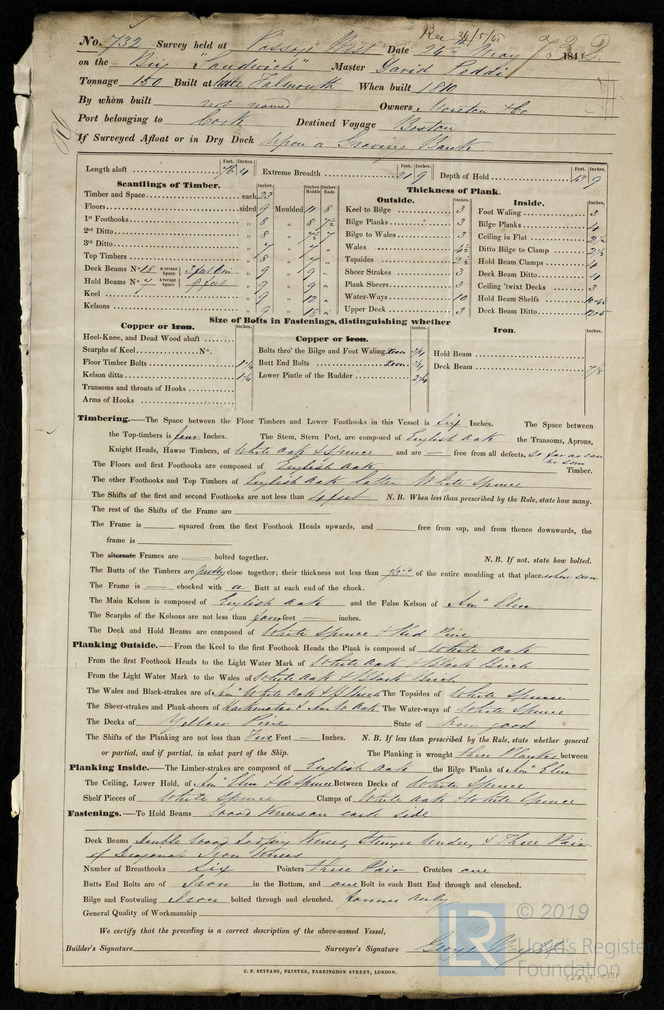 Rec 26/5/45
No. 732 Survey held at Passage West Date 24th May 184
on the Brig "Sandwich" Master David Peddie
Tonnage 150 Built at Falmouth When built 1810
By whom built not named Owners &Co
Port belonging to Cork Destined Voyage Boston
If Surveyed Afloat or in Dry Dock Upon a Graving Bank
Length aloft Feet. 76 Inches. 4 Extreme Breadth Feet. 21 Inches. 9 Depth of Hold Feet. 13 Inches. 9
Scantlings of Timber.
Timber and Space each Inches. 22
Floors sided 9 Moulded 11 8
1st Foothooks 8 8 7½
2nd Ditto 8 7½ 7
3rd Ditto 7 7
Top Timbers 7
Deck Beams No 18 Average Space 9 9
Hold Beams No 7 Average Space 9 feet 9 9
Keel 9 12
Kelsons 9
Thickness of Plank.
Outside.
Keel to Bilge 3
Bilge Planks 3
Bilge to Wales 3
Wales 4½
Topsides 2½
Sheer Strakes 3
Plank Sheers 3
Water-Ways 10
Upper Deck 3
Inside.
Foot Waling 3
Bilge Planks 4
Ceiling in Flat 2½
Ditto Bilge to Clamp 2½
Hold Beam Clamps 4
Deck Beam Ditto 4
Ceiling 'twixt Decks 3
Hold Beam Shelfs
Deck Beam Ditto
Size of Bolts in Fastenings, distinguishing whether
Copper or Iron.
Heel-Knee, and Dead Wood abaft
Scarphs of Keel No.
Floor Timber Bolts
Kelson ditto
Transoms and throats of Hooks
Arms of Hooks
Copper or Iron.
Bolts thro' the Bilge and Foot Waling Iron ¾
Butt End Bolts Iron ¾
Lower Pintle of the Rudder 2¼
Iron.
Hold Beam
Deck Beam 7/8
Timbering.—The Space between the Floor Timbers and Lower Foothooks in this Vessel is six Inches. The Space between
the Top-timbers is four Inches. The Stem, Stern Post, are composed of English Oak the Transoms, Aprons,
Knight Heads, Hawse Timbers, of White Oak & Spruce and are — free from all defects, so far as can be seen
The Floors and first Foothooks are composed of English Oak Timber.
The other Foothooks and Top Timbers of English Oak latter White Spruce
The Shifts of the first and second Foothooks are not less than 4 feet N. B. When less than prescribed by the Rule, state how many.
The rest of the Shifts of the Frame are
The Frame is squared from the first Foothook Heads upwards, and free from sap, and from thence downwards, the
frame is
The alternate Frames are bolted together. N. B. If not, state how bolted.
The Butts of the Timbers are pretty close together; their thickness not less than of the entire moulding at that place. where seen
The Frame is — chocked with a Butt at each end of the chock.
The Main Kelson is composed of English Oak and the False Kelson of Amn Elm
The Scarphs of the Kelsons are not less than four feet — inches.
The Deck and Hold Beams are composed of White Spruce & Red Pine
Planking Outside.—From the Keel to the first Foothook Heads the Plank is composed of White Oak
From the first Foothook Heads to the Light Water Mark of White Oak & Black Birch
From the Light Water Mark to the Wales of White Oak & Black Birch
The Wales and Black-strakes are of Amn White Oak & B Birch The Topsides of White Spruce
The Sheer-strakes and Plank-sheers of Hackmatac & Amn W Oak The Water-ways of White Spruce
The Decks of Yellow Pine State of now good
The Shifts of the Planking are not less than Five Feet — Inches. N. B. If less than prescribed by the Rule, state whether general
or partial, and if partial, in what part of the Ship. The Planking is wrought three Planks between
Planking Inside.—The Limber-strakes are composed of English Oak the Bilge Planks of Amn Elm
The Ceiling, Lower Hold, of Amn Elm & W Spruce Between Decks of White Spruce
Shelf Pieces of White Spruce Clamps of White Oak & White Spruce
Fastenings.—To Hold Beams Wood Knees on each side
Deck Beams Double Wood Lodging Knees, Stringer under, & Three Pair
of Diagonal Iron Knees
Number of Breasthooks Six Pointers three Pair Crutches one
Butts End Bolts are of Iron in the Bottom, and one Bolt in each Butt End through and clenched.
Bilge and Footwaling Iron bolted through and clenched. former only
General Quality of Workmanship
We certify that the preceding is a correct description of the above-named Vessel,
Builder's Signature Surveyor's Signature
C. F. SEYFANG, PRINTER, FARRINGDON STREET, LONDON.
LR © 2019
Lloyd's Register
Foundation